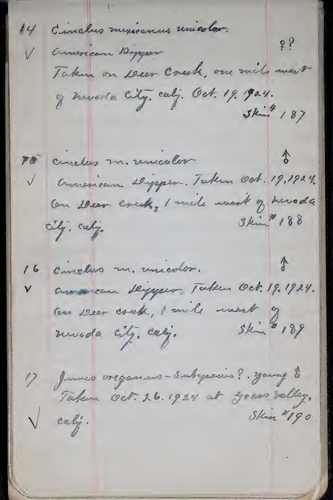 14 Cinclus mexicanus unicolor.
✓ American Dipper ♀?
Taken on Deer Creek, one mile west
of Nevada City, Calif. Oct. 19, 1924.
Skin # 187
15 Cinclus m. unicolor ♂
✓ American Dipper. Taken Oct. 19, 1924.
On Deer Creek, 1 mile west of Nevada
City, Calif. Skin # 188
16 Cinclus m. unicolor. ♂
✓ American Dipper. Taken Oct. 19, 1924.
On Deer Creek, 1 mile west of
Nevada City, Calif. Skin # 189
17 Junco oreganus - Subspecies? young ♂
Taken Oct. 26, 1924 at Grass Valley,
✓ Calif. Skin # 190